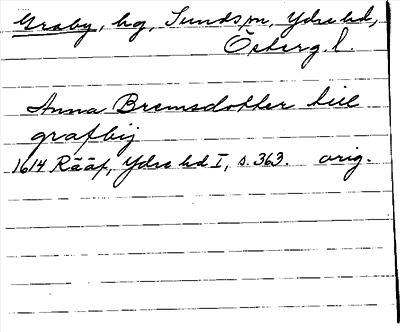 Graby, hg, Sunds sn, Ydre hd,
Österg. l.
Anna Bremsdotter till
grafbij
1614 Rääf, Ydre hd I, s. 363. orig.